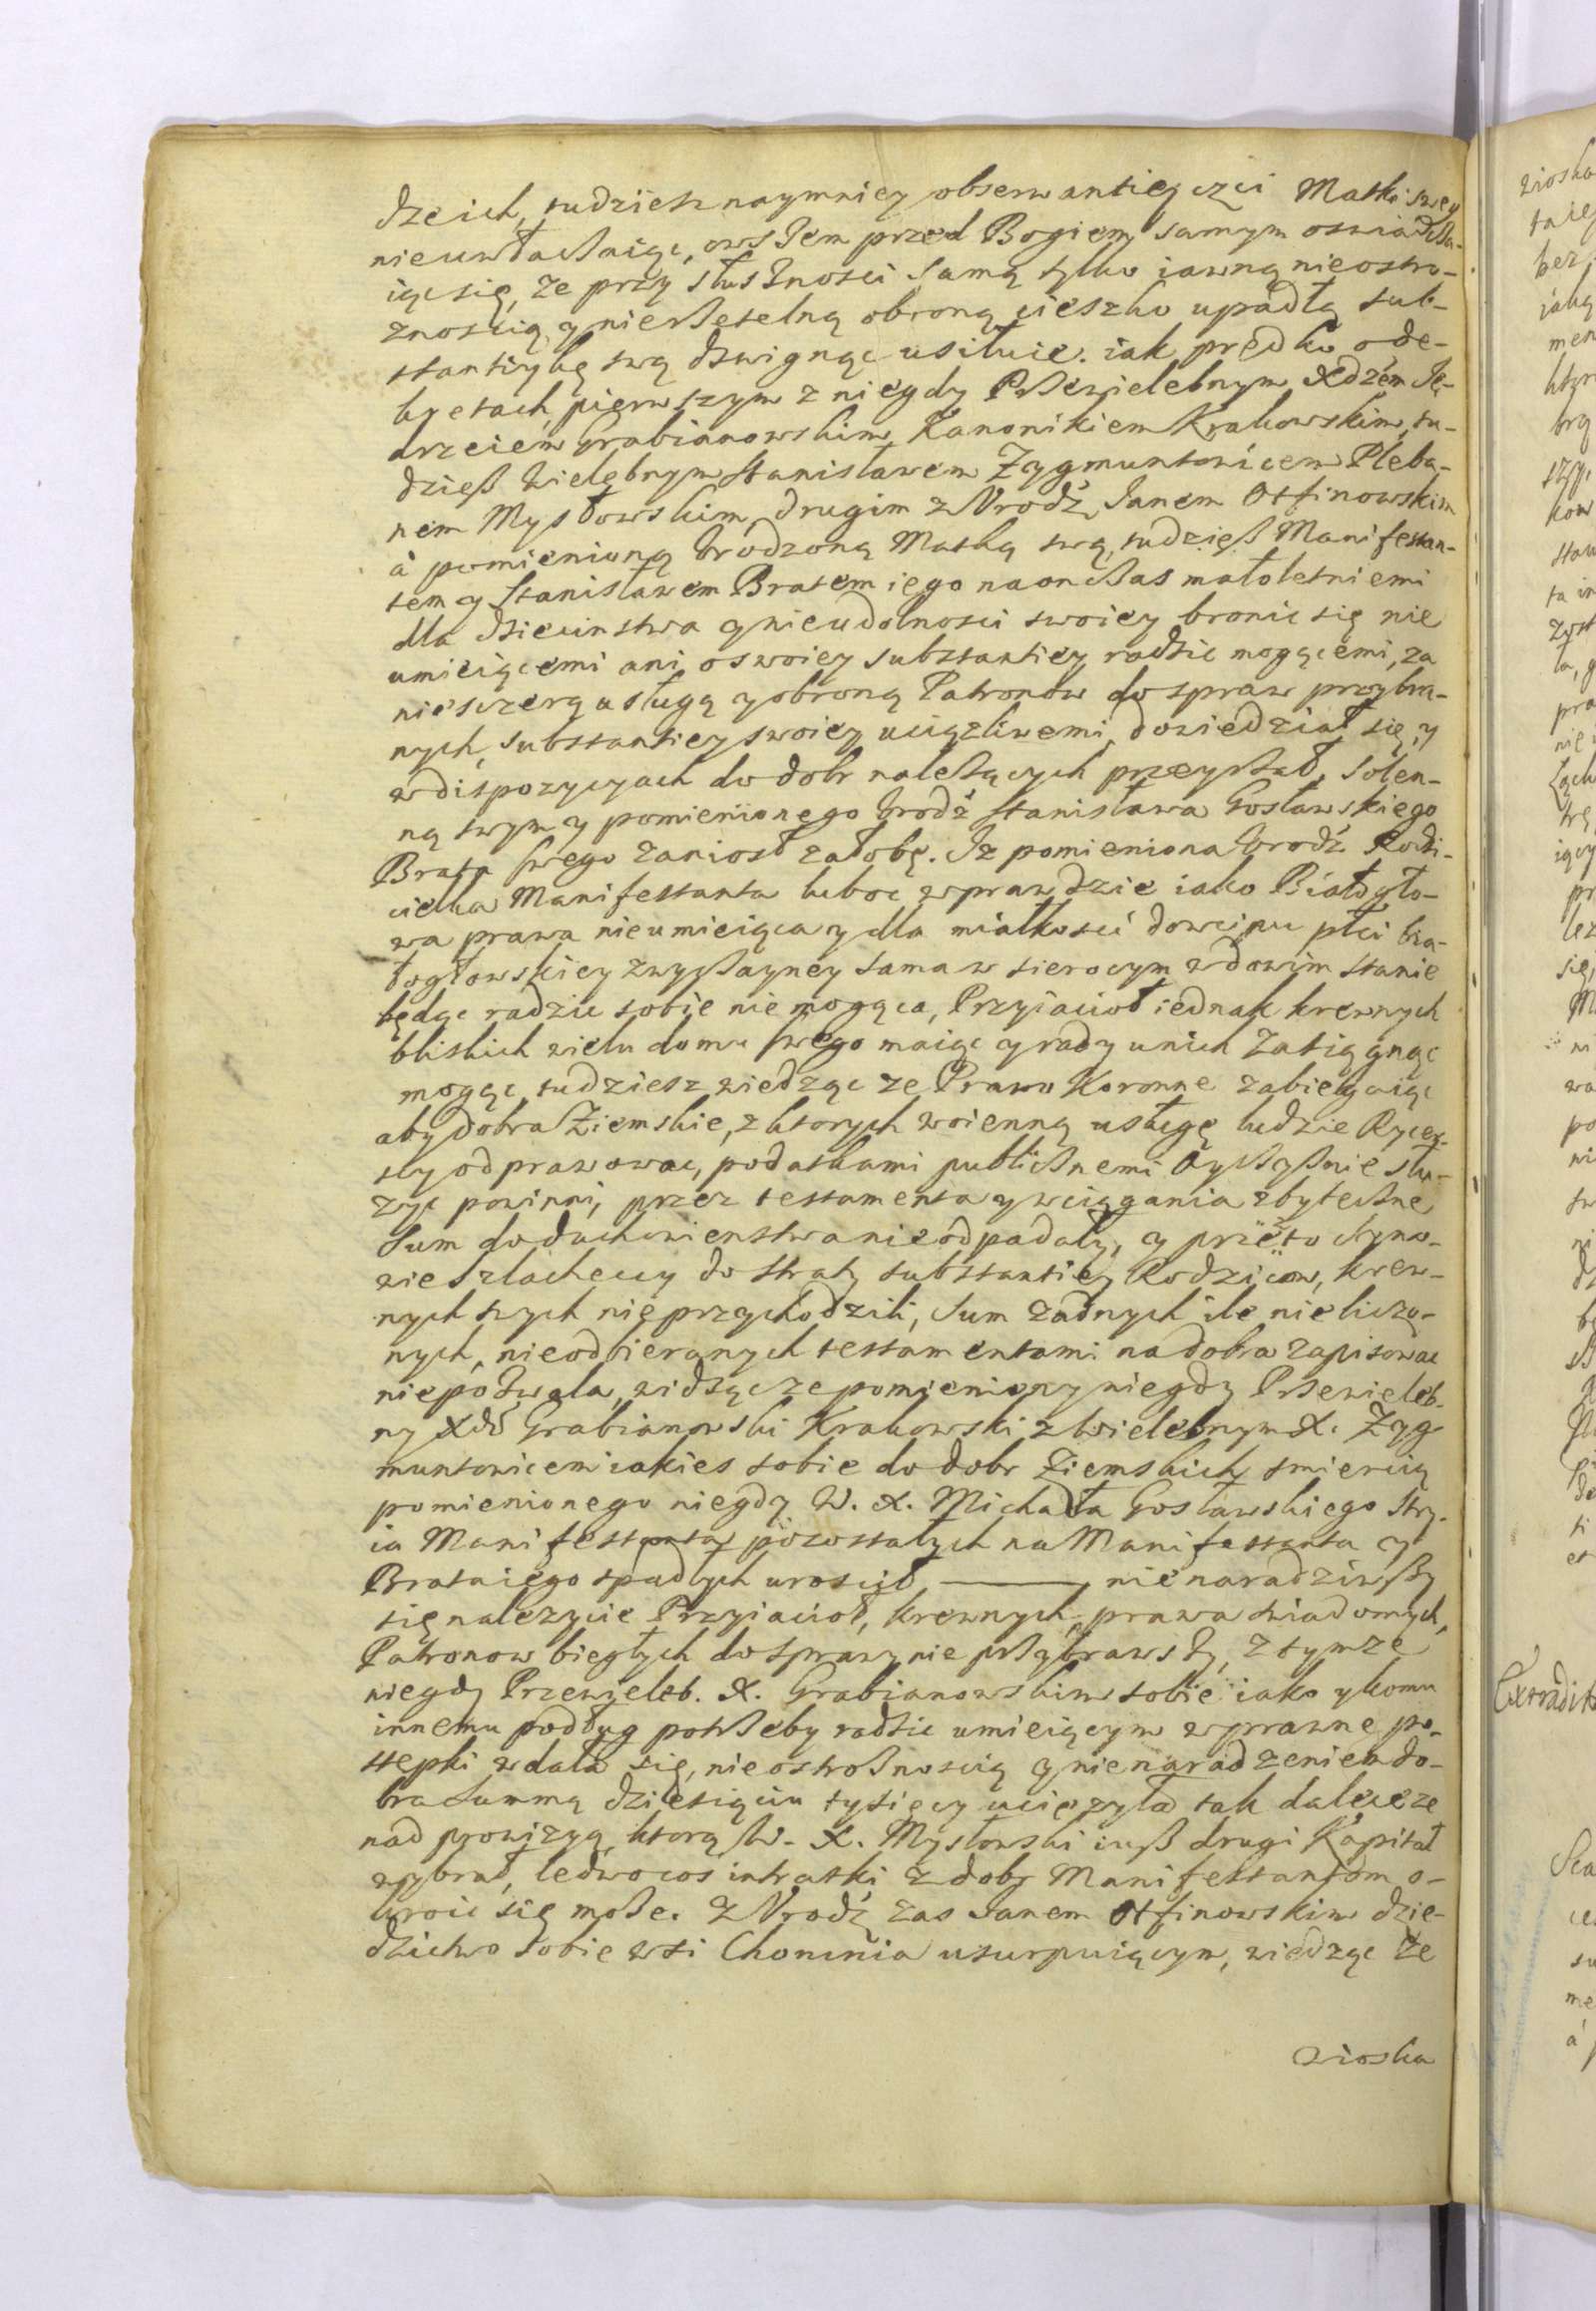 dzeich, tudziesz naymniey obserwantiey czci Matki swey
nieuwłaczaiąc, owszem przed Bogiem samym oswiadcza-
iąc się, że przy słusznosci samą tylko iawną nieostro-
znoscią y nierzetelną obroną cieszko upadłą sub-
stantiykę swą dzwignąc usiłuie. iak prędko o de-
kretach pierwszym z niegdy Przewielebnym Xdzem Ję-
drzeiem Grabianowskim Kanonikiem Krakowskim, tu-
dziesz Wielebnym Stanisławem Zygmuntowicem Pleba-
nem Mysłowskim, drugim z Urodz. Janem Otfinowskim
à pomienioną Urodzoną Matką swą, tudziesz Manifestan-
tem y Stanisławem Bratem iego na on czas małoletniemi
dla dziecinstwa y nieudolnosci swoiey bronic się nie
umieiącemi ani o swoiey substantiey radzic mogącemi, za
nieszczerą usługą y obroną Patronow do spraw przybra-
nych, substantiey swoiey uciązliwemi, dowiedział się, y
w dispozycyach do dobr należących przeyrzał, solen-
ną swym y pomienionego Urodz Stanisława Gosławskiego
Brata swego zaniosł załobę. Iz pomieniona Urodz. Rodzi-
cielka Manifestanta luboc wprawdzie iako Białogło-
wa prawa nieumieiąca y dla miałkosci dowcipu płci bia-
łogłowskiey zwyczayney sama w sierocym wdowim stanie
będąc radzic sobie nie mogąca, Przyiacioł iednak krewnych
bliskich wielu domu swego maiąc y rady u nich zasiągnąc
mogąc, tudziesz wiedząc ze Prawo Koronne zabiegaiąc
aby dobra Ziemskie, z ktorych woienną usługę ludzie Rycer-
scy odprawowac, podatkami publicznemi Oyczyznie słu-
zyc powinni, przez testamenta y wciągania zbyteczne
Sum do duchowienstwa nie odpadały, y przeto Syno-
wie Szlacheccy do straty substantiey Rodzicow, krew-
nych swych nie przychodzili, Sum zadnych ile nieliczo-
nych, nieodbieranych testamentami na dobra zapisowac
niepozwala, widząc ze pomieniony niegdy Przewieleb-
ny Xdz Grabianowski Krakowski z Wielebnym X. Zyg-
muntowicem iakies sobie do dobr Ziemskich smiercią
pomienionego niegdy W. X. Michała Gosławskiego Stry-
ia Manifestanta pozostałych na Manifestanta y
Brata iego spadłych uroscił, ——— nie naradziwszy
się nalezycie Przyiacioł, krewnych, prawa swiadomych,
Patronow biegłych do sprawy nie przybrawszy, z tymze
niegdy Przewieleb. X. Grabianowskim sobie iako y komu
innemu podług potrzeby radzic umieiącym w prawne po-
stepki wdała się, nieostroznoscią y nienaradzeniem do-
bra Summą dziesięciu tysięcy ucięzyła tak dalece ze
nad prowizyą, ktorą W. X. Mysłowski iusz drugi Kapitał
wybrał, ledwo cos intratki z dobr Manifestantom o-
kroic się moze. Z Urodz. zas Janem Otfinowskim dzie-
dzictwo sobie wsi Chominia usurpuiącym, wiedząc ze
wioska